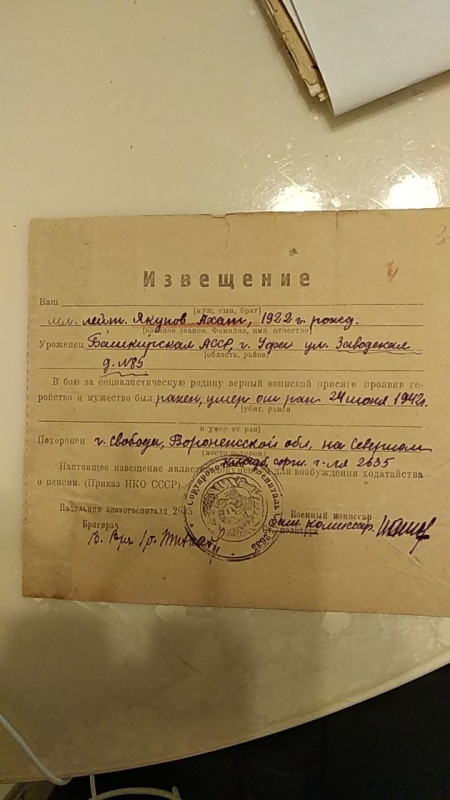 Извещение
Ваш
[муж, сын, брат]
мл. лейт. Якупов Ахат, 1922 г. рожд.
[военное звание. Фамилия, имя отчество]
Уроженец Башкирская АССР, г. Уфа ул. Заводская
[область, район]
д. №85
В бою за социалистическую родину верный воинской присяге проявив ге-
ройство и мужество был ранен, умер от ран 24 июня 1942г.
[убит, ранен
и умер от ран]
Похоронен г. Свобода, Воронежской обл, на Северном
[место похорон]
кладб. сорт. г-ля 2635
Настоящее извещение является документом для возбуждения ходатайства
о пенсии. (Приказ НКО СССР).
Начальник эвакогоспиталя 2635
Военный комиссар
Бригврач
В. Врач
ст. комиссар
политрук
Сортировочный госпиталь 2635